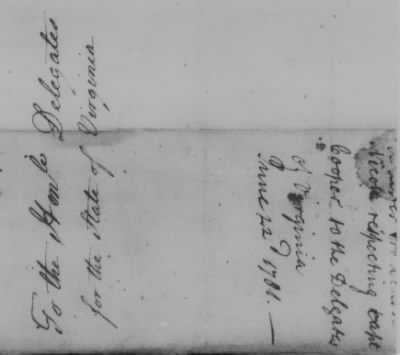 To the Honble Delegates
for the State of Virginia
Nicola respecting Capt
Cooper to the Delegates
of Virginia
June 22d 1781. —